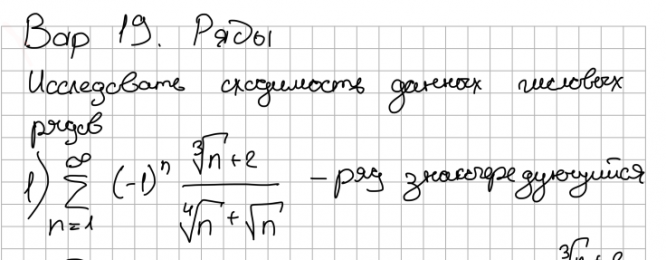 Вар 19. Ряды
Исследовать сходимость данных числовых
рядов
1) ∑_{n=1}^{∞} (-1)^n (∛n + 2) / (∜n + √n) – ряд знакочередующийся